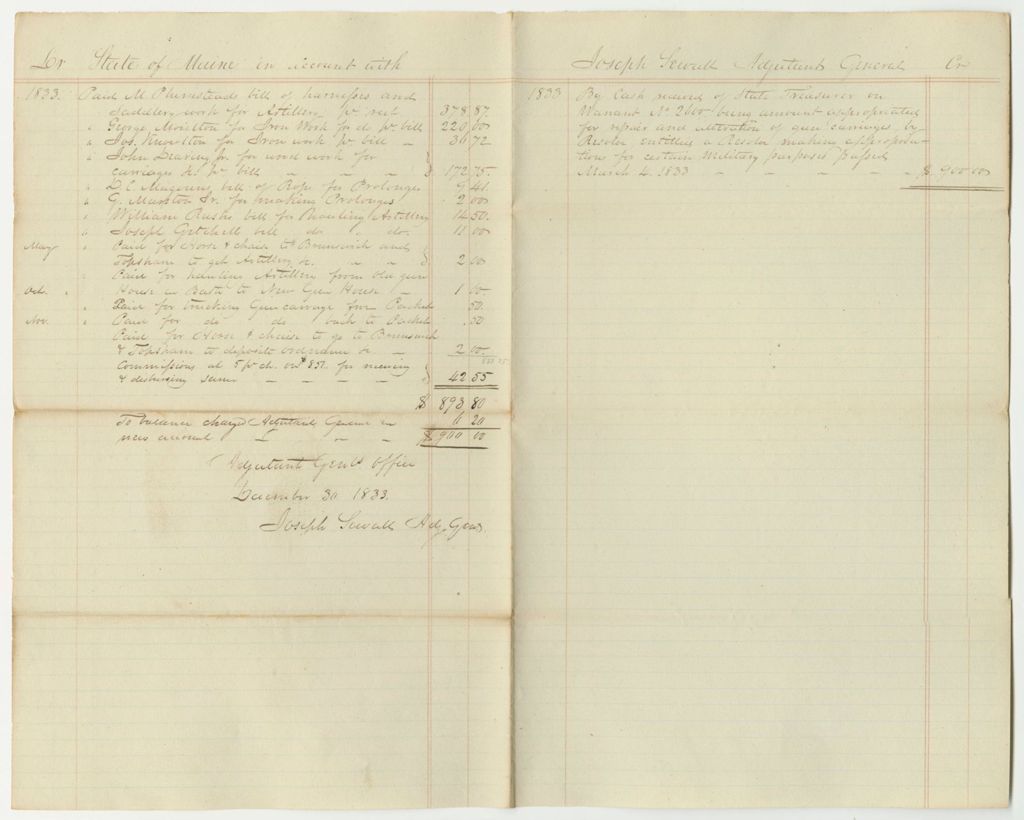 Dr State of Maine in account with
1833. Paid M. bill of harnesses and
Saddlery work for Artillery pr rect 378 87
" George Moulton for Iron Work for do pr bill 220 00
" Jos. Knowlton for Iron work pr bill - 36 72
" John Dearing Jr. for wood work for
carriages &c pr bill " " " 172 75
" D. C. Magouns bill of Rope for Prolonges 9 41
" G. Marston Jr. for making Prolonges 2 00
" William Rusks bill for Hauling Artillery 14 50
" Joseph Getchell bill do " do. 11 00
May " Paid for Horse & chaise to Brunswick and
Topsham to get Artillery &c. " " 2 00
" Paid for hauling Artillery from old gun
Oct. " House in Bath to New Gun House - 1 00
" Paid for trucking Gun carriage from Packet .50
Nov. " Paid for do do back to Packet .50
Paid for Horse & chaise to go to Brunswick
& Topsham to deposite ordnance &c - 2 00
Commissions at 5 pr ct. on $851. for receiving
& disbursing same - - - - 42 55
$ 893 80
To balance charged Adjutant General in
new account - " " 6 20
$ 900 00
Adjutant Genls Office
December 30 1833.
Joseph Sewall Adj. Genl.
Joseph Sewall Adjutant General Cr
1833 By Cash received of State Treasurer on
Warrant No. being amount appropriated
for repair and alteration of gun carriages, by
Resolve entitled a Resolve making appropria-
tions for certain Military purposes Passed
March 4. 1833 - - - - - $ 900 00